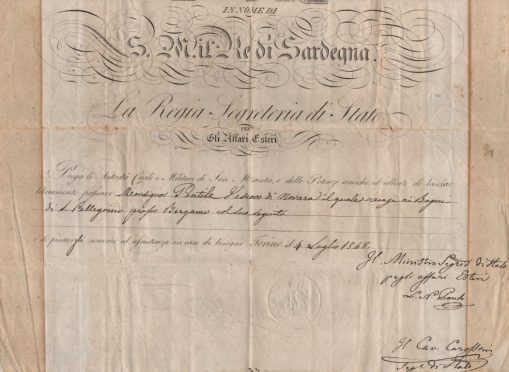 IN NOME DI
S. M. il Re di Sardegna.
La Regia Segreteria di Stato
PER
Gli Affari Esteri
Prega le Autorità Civili e Militari di Sua Maestà, e delle Potenze amiche ed alleate di lasciar
liberamente passare Monsignor Gentile Vescovo di Novara il quale recasi ai Bagni
di S. Pellegrino presso Bergamo col suo seguito
e di prestargli soccorso ed assistenza in caso di bisogno Torino il 4 Luglio 1848.
Il Ministro Segrio di Stato
pegli affari Esteri
L. N. Pareto
Il Cav.
Segr. di Stato